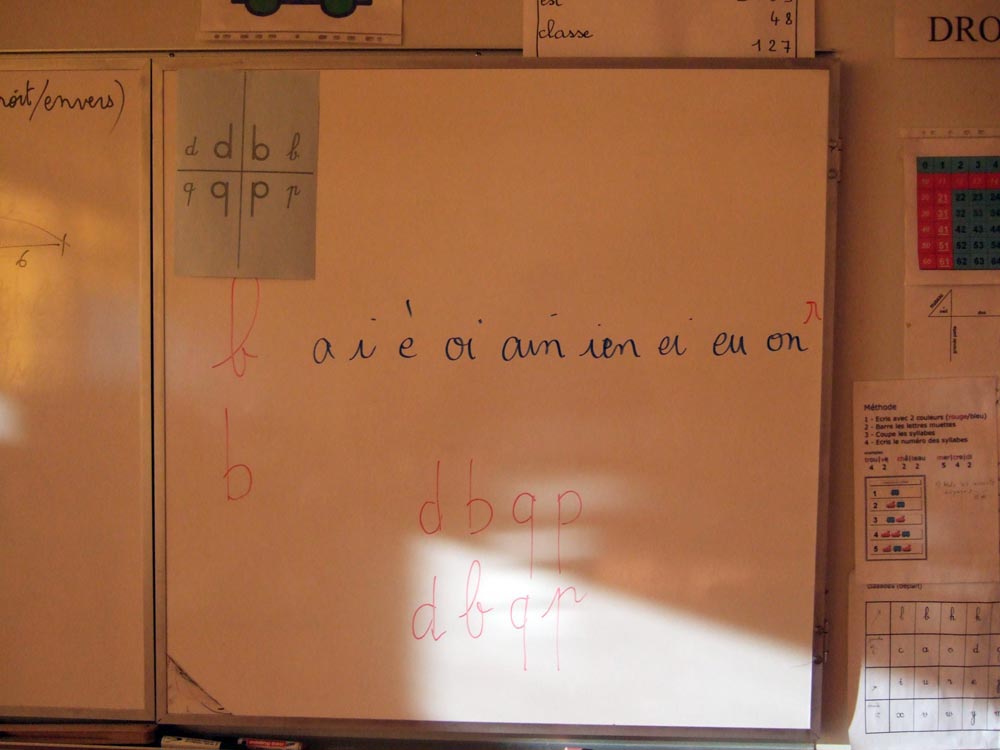 est
classe
48
127
DRO
roit/envers)
d d b b
q q p p
6
0 1 2 3 4
22 23 24
31 32 33 34
41 42 43 44
51 52 53 54
60 61 62 63 64
b
a i è oi ain ien ei eu on r
b
d b q p
d b q p
Méthode
1 - Ecris avec 2 couleurs (rouge/bleu)
2 - Barre les lettres muettes
3 - Coupe les syllabes
4 - Ecris le numéro des syllabes
trou|ve châ|teau mer|cre|di
4 2 2 2 5 4 2
1
2
3
4
5
l b h k
c a o d
i u r e